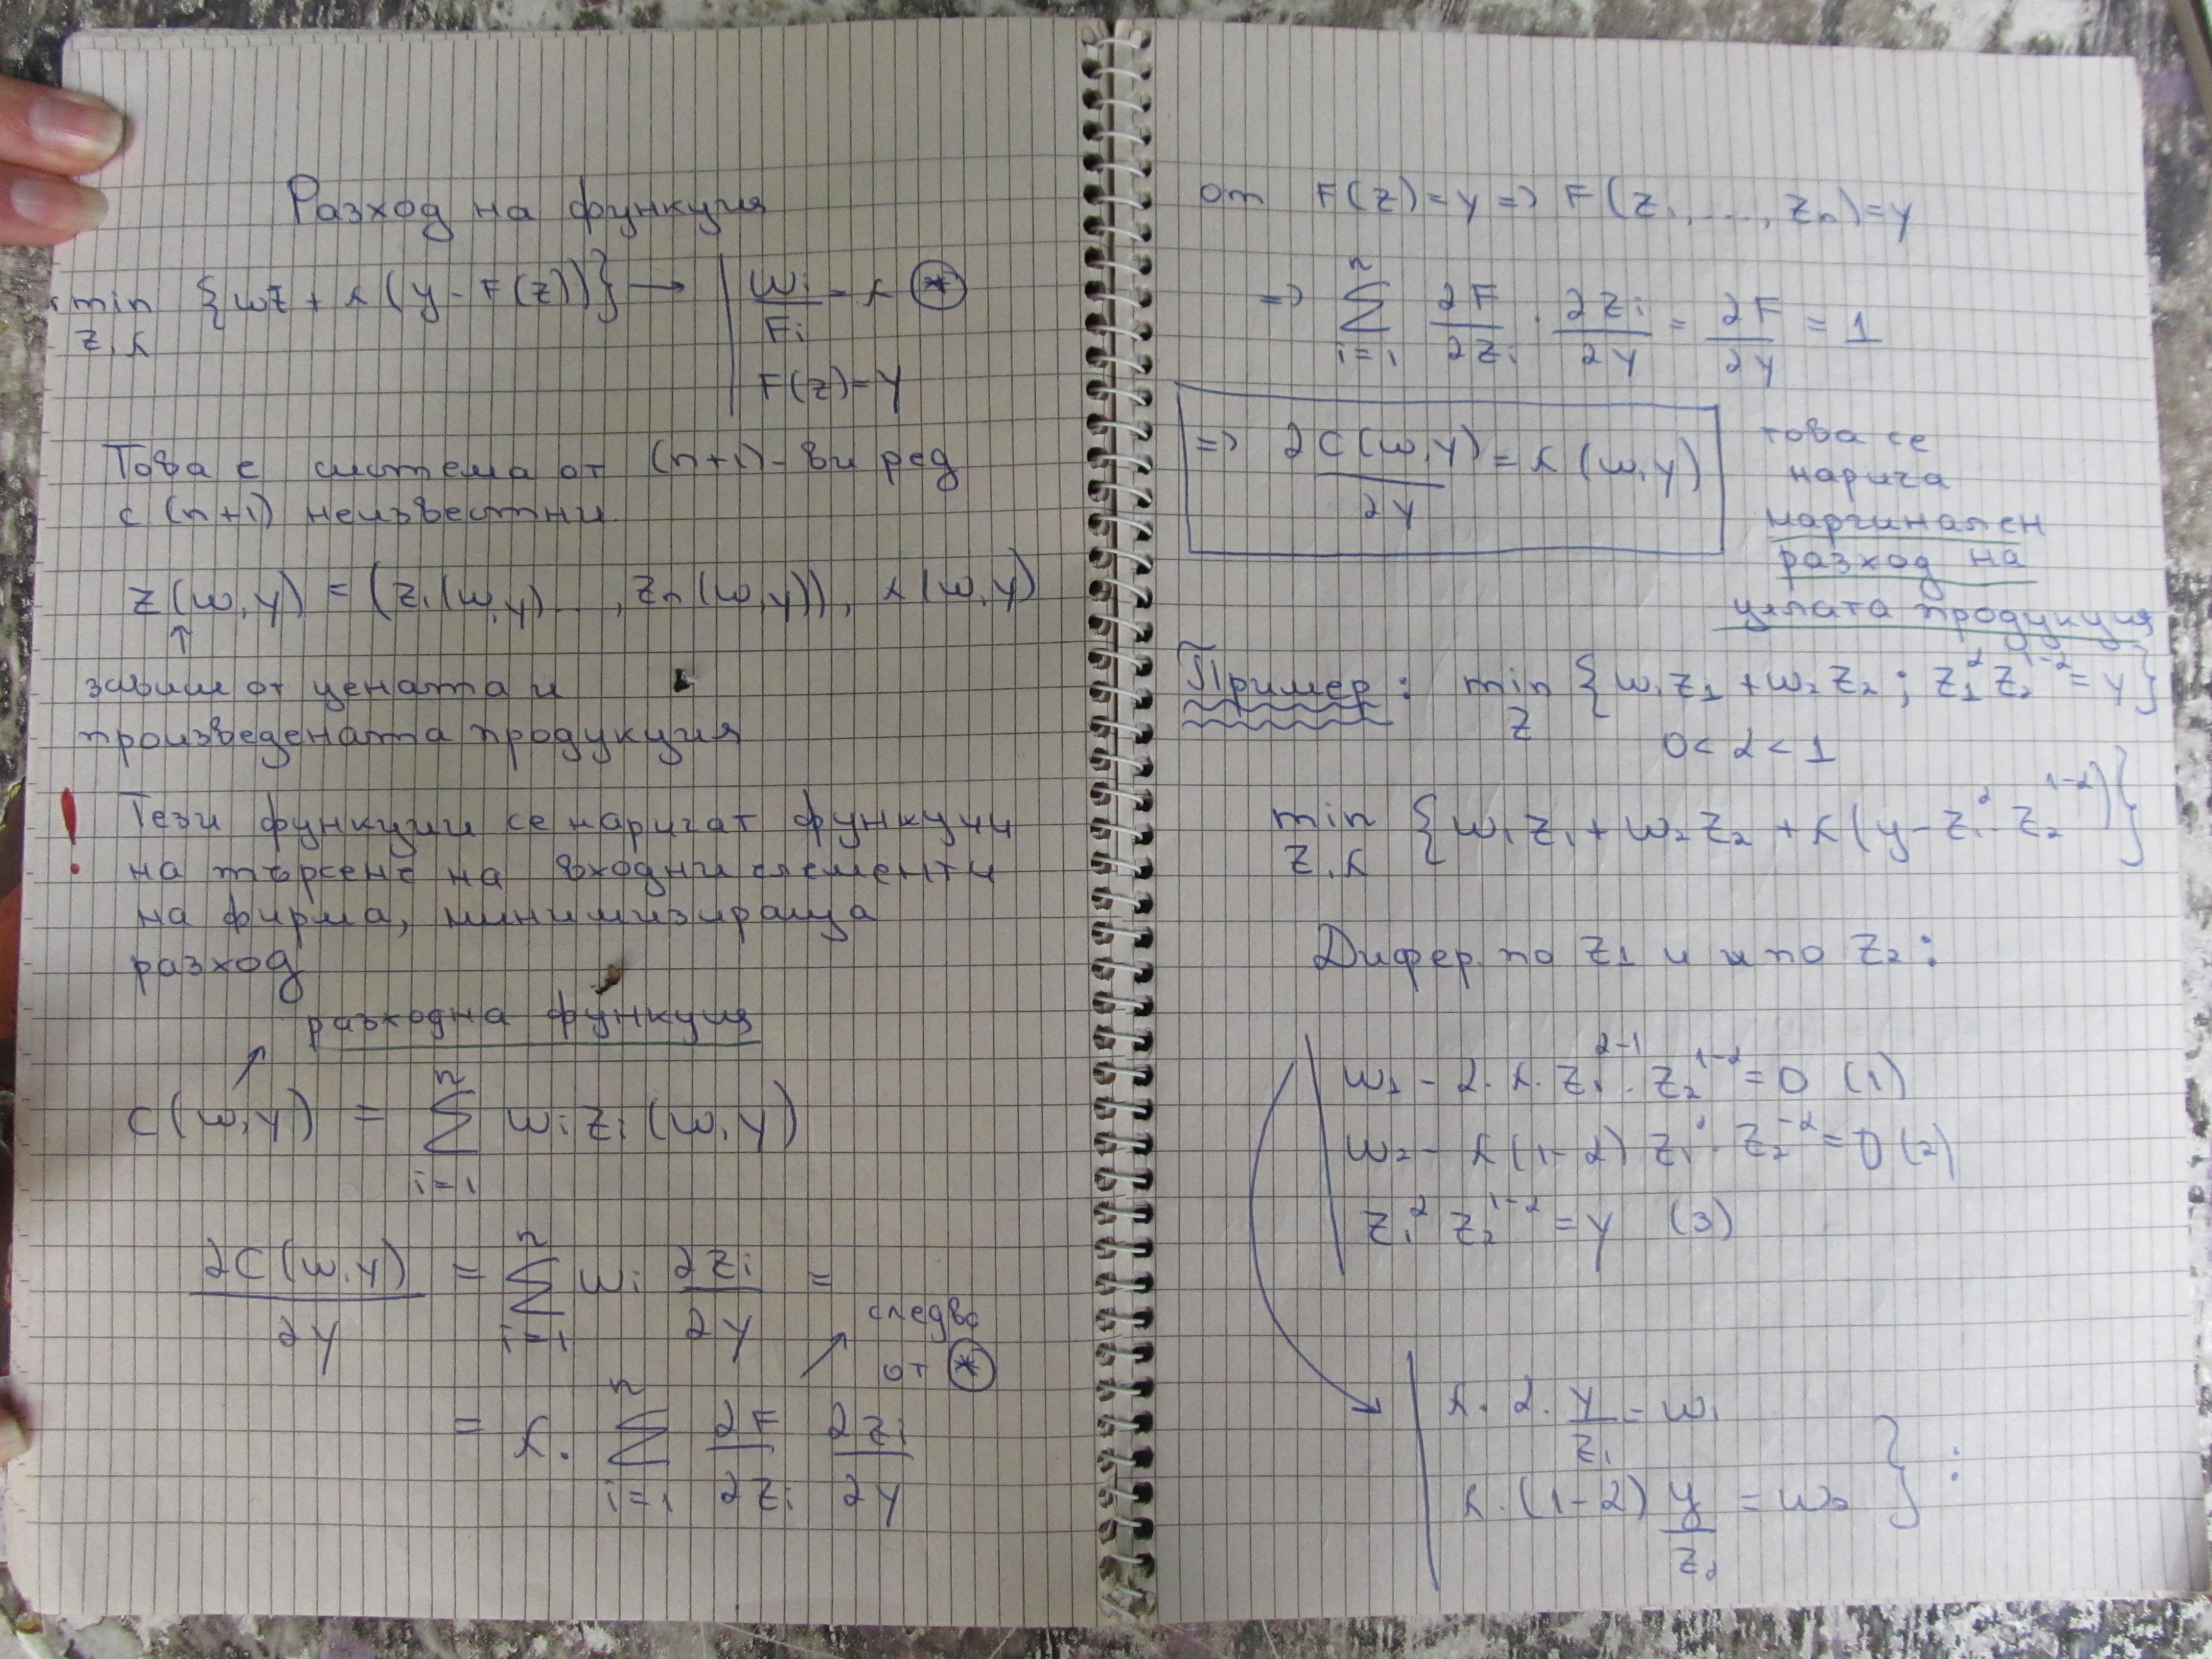 Разход на функция
min {wz + λ(y - F(z))} → | wi/Fi = λ (*)
z, λ
F(z) = y
Това е система от (n+1)-ви ред
с (n+1) неизвестни.
z(w,y) = (z1(w,y)..., zn(w,y)), λ(w,y)
↑
зависи от цената и
произведената продукция
! Тези функции се наричат функции
на търсене на входни елементи
на фирма, минимизираща
разход
разходна функция
↗
C(w,y) = Σ_{i=1}^{n} wi zi(w,y)
∂C(w,y)/∂y = Σ_{i=1}^{n} wi ∂zi/∂y =
↗ следва
от (*)
= λ. Σ_{i=1}^{n} ∂F/∂zi ∂zi/∂y
от F(z) = y => F(z1, ..., zn) = y
=> Σ_{i=1}^{n} ∂F/∂zi · ∂zi/∂y = ∂F/∂y = 1
=> ∂C(w,y)/∂y = λ(w,y)
това се
нарича
маргинален
разход на
цялата продукция
Пример: min {w1z1 + w2z2; z1^α z2^{1-α} = y}
z
0 < α < 1
min {w1z1 + w2z2 + λ(y - z1^α · z2^{1-α})}
z, λ
Дифер. по z1 и по z2:
w1 - α.λ.z1^{α-1}.z2^{1-α} = 0 (1)
w2 - λ(1-α) z1^α.z2^{-α} = 0 (2)
z1^α z2^{1-α} = y (3)
λ.α.y/z1 = w1
λ.(1-α) y/z2 = w2 } :